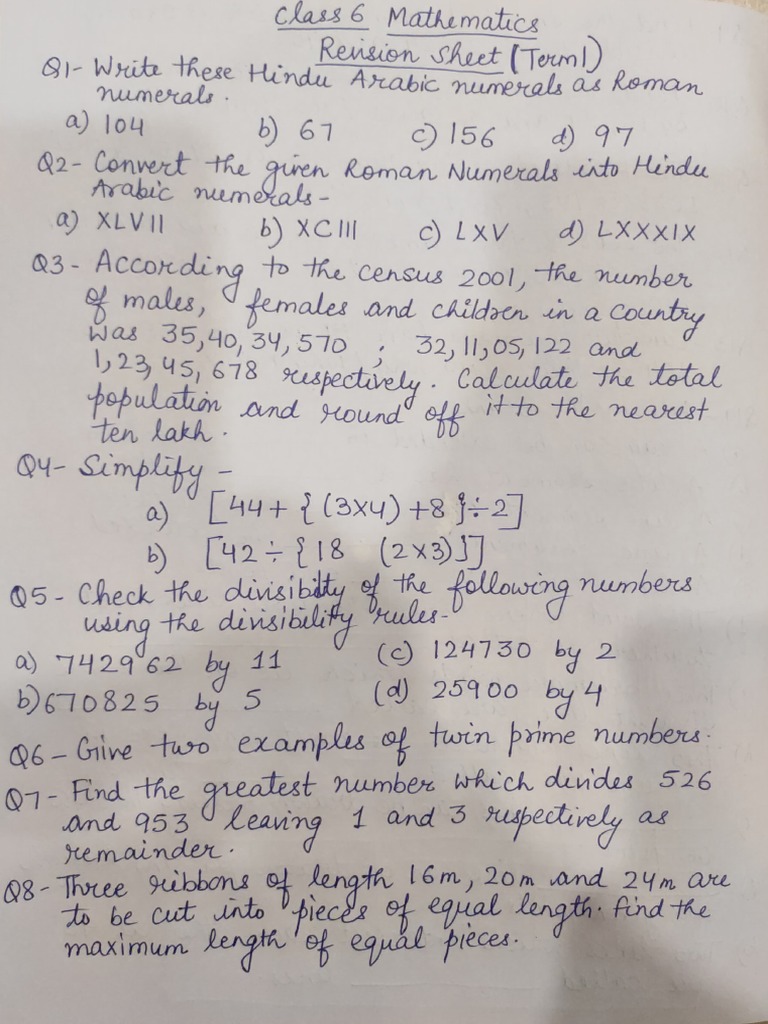 Class 6 Mathematics
Revision Sheet (Term1)
Q1- Write these Hindu Arabic numerals as Roman
numerals.
a) 104 b) 67 c) 156 d) 97
Q2- Convert the given Roman Numerals into Hindu
Arabic numerals-
a) XLVII b) XCIII c) LXV d) LXXXIX
Q3- According to the census 2001, the number
of males, females and children in a country
was 35,40,34,570 ; 32,11,05,122 and
1,23,45,678 respectively. Calculate the total
population and round off it to the nearest
ten lakh.
Q4- Simplify -
a) [44+ {(3x4) +8}÷2]
b) [42÷ {18 (2x3)}]
Q5- Check the divisibility of the following numbers
using the divisibility rules-
a) 742962 by 11 (c) 124730 by 2
b) 670825 by 5 (d) 25900 by 4
Q6- Give two examples of twin prime numbers.
Q7- Find the greatest number which divides 526
and 953 leaving 1 and 3 respectively as
remainder.
Q8- Three ribbons of length 16m, 20m and 24m are
to be cut into pieces of equal length. find the
maximum length of equal pieces.